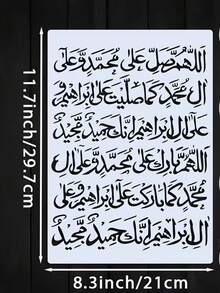 اللهم صل على محمد وعلى
ال محمد كما صليت على ابراهيم و
على ال ابراهيم إنك حميد مجيد
اللهم بارك على محمد وعلى ال
محمد كما باركت على ابراهيم وعلى
ال ابراهيم إنك حميد مجيد
11.7inch/29.7cm
8.3inch/21cm